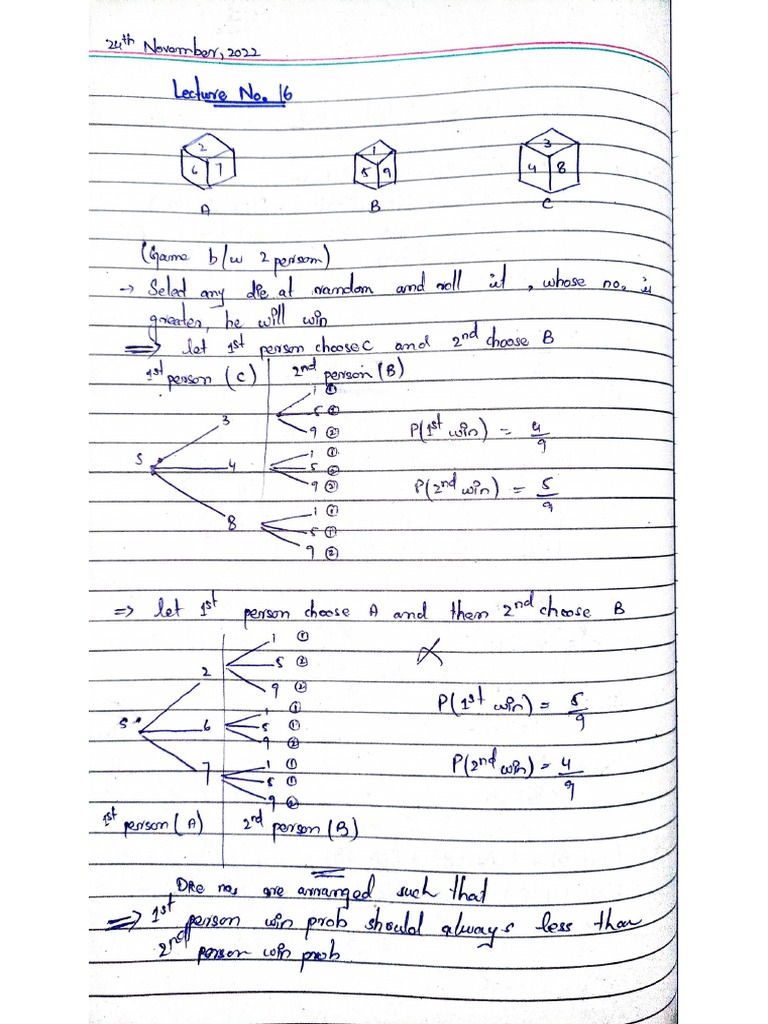 24th November, 2022
Lecture No. 16
2 1 3
6 7 5 9 4 8
A B C
(Game b/w 2 person)
→ Select any die at random and roll it, whose no. is
greater, he will win
⇒ let 1st person choose C and 2nd choose B
1st person (C) 2nd person (B)
1 ①
3 5 ②
9 ② P(1st win) = 4/9
1 ①
S 4 5 ②
9 ② P(2nd win) = 5/9
1 ①
8 5 ①
9 ②
⇒ let 1st person choose A and then 2nd choose B
1 ①
2 5 ②
9 ②
1 ① P(1st win) = 5/9
S 6 5 ①
9 ②
7 1 ① P(2nd win) = 4/9
5 ①
9 ②
1st person (A) 2nd person (B)
Die nos are arranged such that
⇒ 1st person win prob should always less than
2nd person win prob